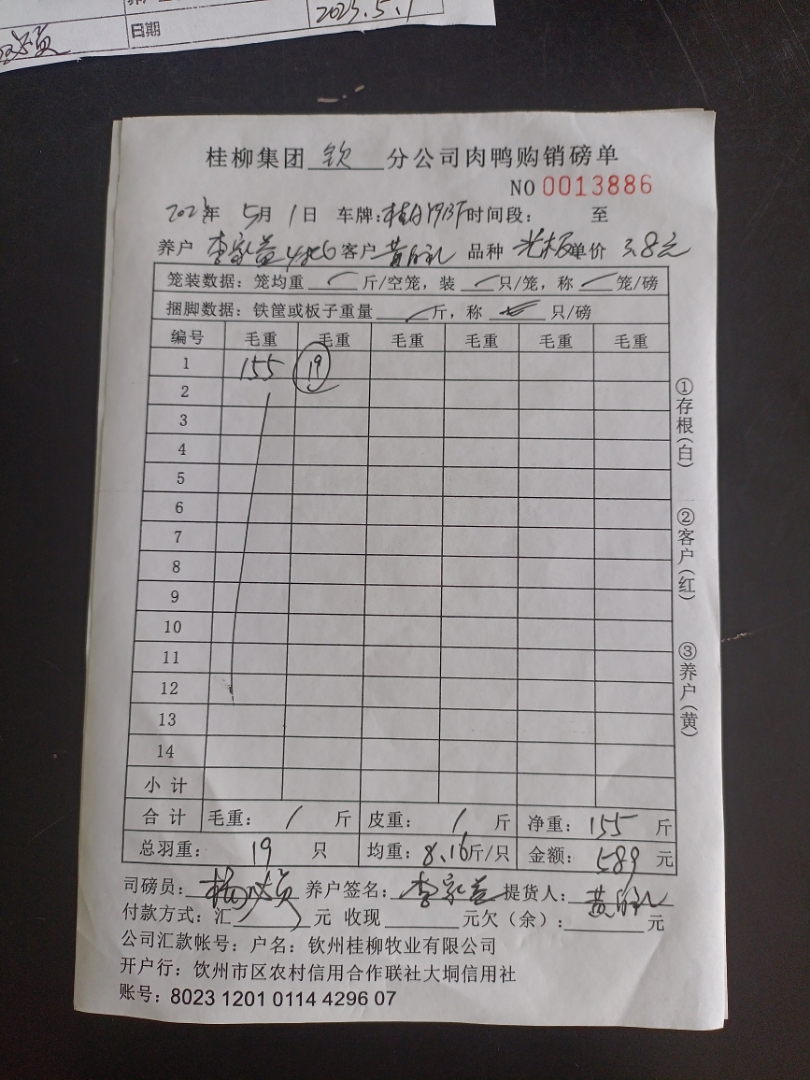 日期 2023.5.1
桂柳集团 钦 分公司肉鸭购销磅单
NO 0013886
2023年 5月 1日 车牌: 时间段: 至
养户 李家益 客户 黄 品种 光板 单价 3.8元
笼装数据: 笼均重 斤/空笼, 装 只/笼, 称 笼/磅
捆脚数据: 铁筐或板子重量 斤, 称 只/磅
编号 毛重 毛重 毛重 毛重 毛重 毛重
1 155 19
2
3
4
5
6
7
8
9
10
11
12
13
14
小计
合计 毛重: / 斤 皮重: / 斤 净重: 155 斤
总羽重: 19 只 均重: 8.16斤/只 金额: 589 元
司磅员: 杨 养户签名: 李家益 提货人: 黄
付款方式: 汇 元 收现 元欠(余): 元
公司汇款帐号: 户名: 钦州桂柳牧业有限公司
开户行: 钦州市区农村信用合作联社大垌信用社
账号: 8023 1201 0114 4296 07
①存根(白)
②客户(红)
③养户(黄)